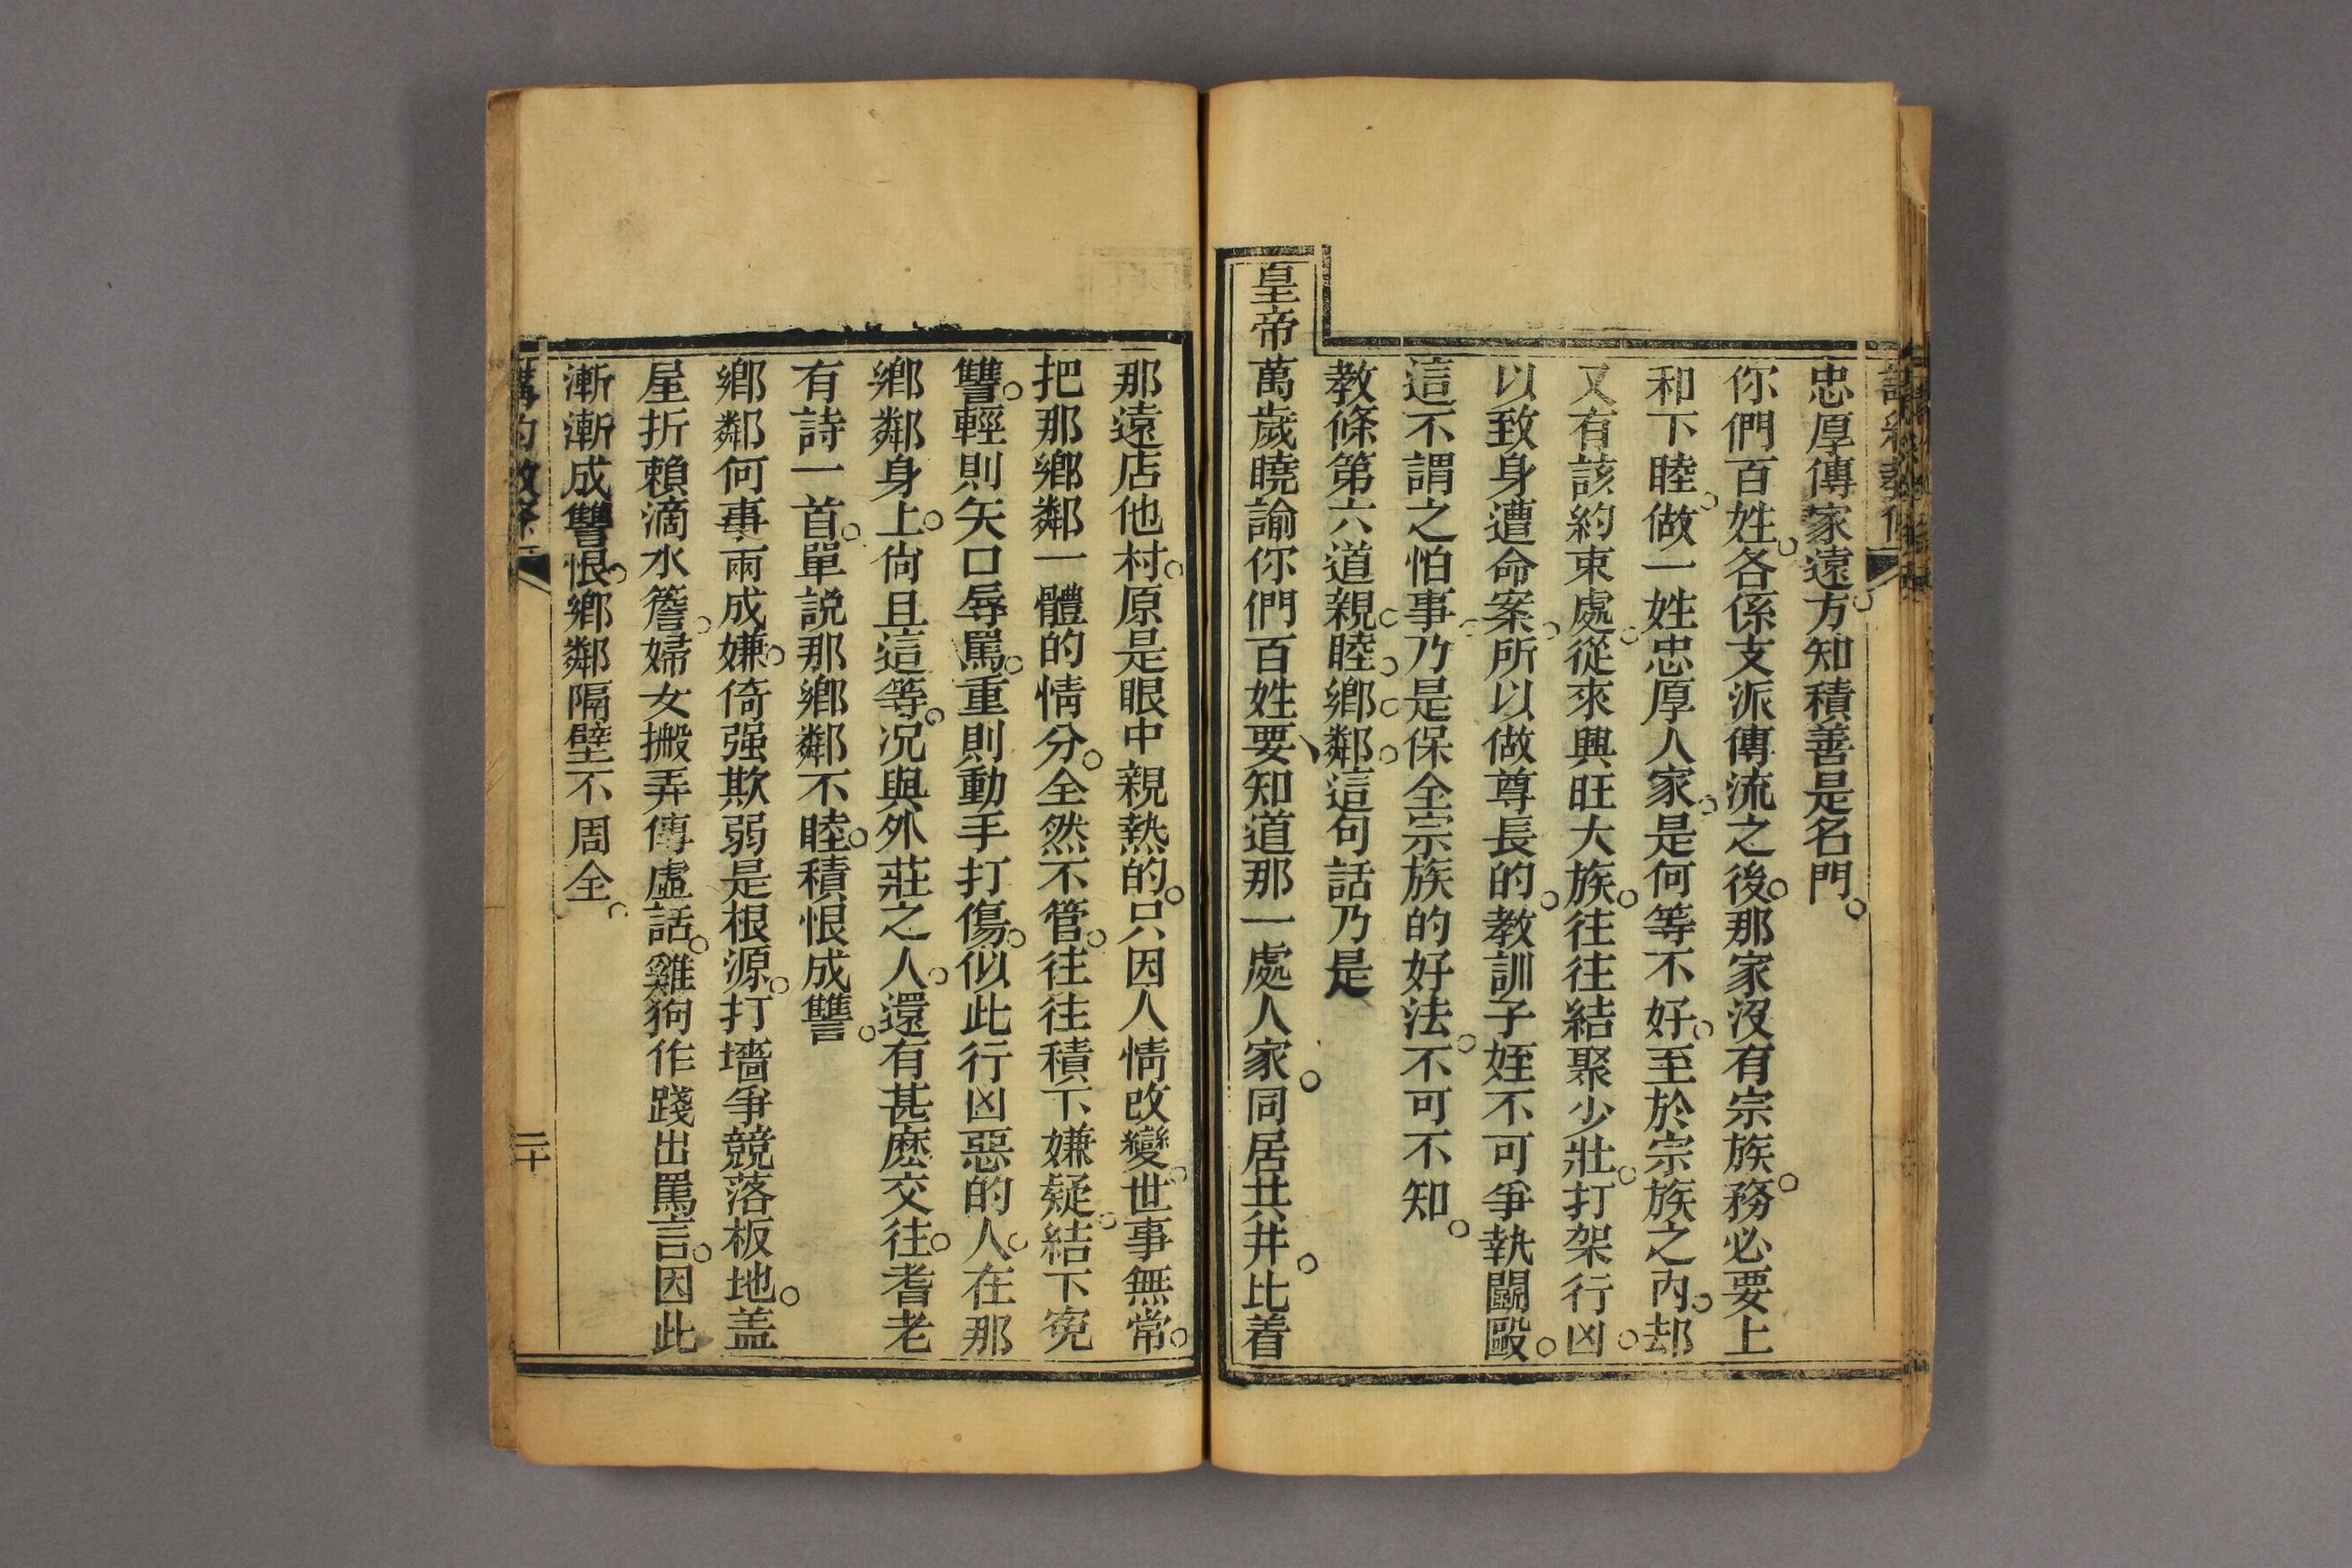 忠厚傳家遠方。知積善是名門。
你們百姓。各係支派傳流之後。那家沒有宗族。務必要上
和下睦。做一姓忠厚人家。是何等不好。至於宗族之內。却
又有該約束處。從來興旺大族。往往結聚少壯。打架行凶。
以致身遭命案。所以做尊長的。教訓子姪不可爭執鬭毆。
這不謂之怕事。乃是保全宗族的好法。不可不知。
教條第六道親。睦。鄉。鄰。這句話乃是
皇帝萬歲曉諭你們百姓要知道那一處人家。同居共井。比着
那遠店他村。原是眼中親熱的。只因人情改變。世事無常。
把那鄉鄰一體的情分。全然不管。往往積下嫌疑。結下寃
讐。輕則矢口辱罵。重則動手打傷。似此行凶惡的人。在那
鄉鄰身上。尙且這等。况與外莊之人。還有甚麽交往。耆老
有詩一首。單說那鄉鄰不睦。積恨成讐。
鄉鄰何事兩成嫌。倚强欺弱是根源。打墻爭競落板地。盖
屋折賴滴水簷。婦女搬弄傳虛話。雞狗作踐出罵言。因此
漸漸成讐恨。鄉鄰隔壁不周全。
講約教條
二十